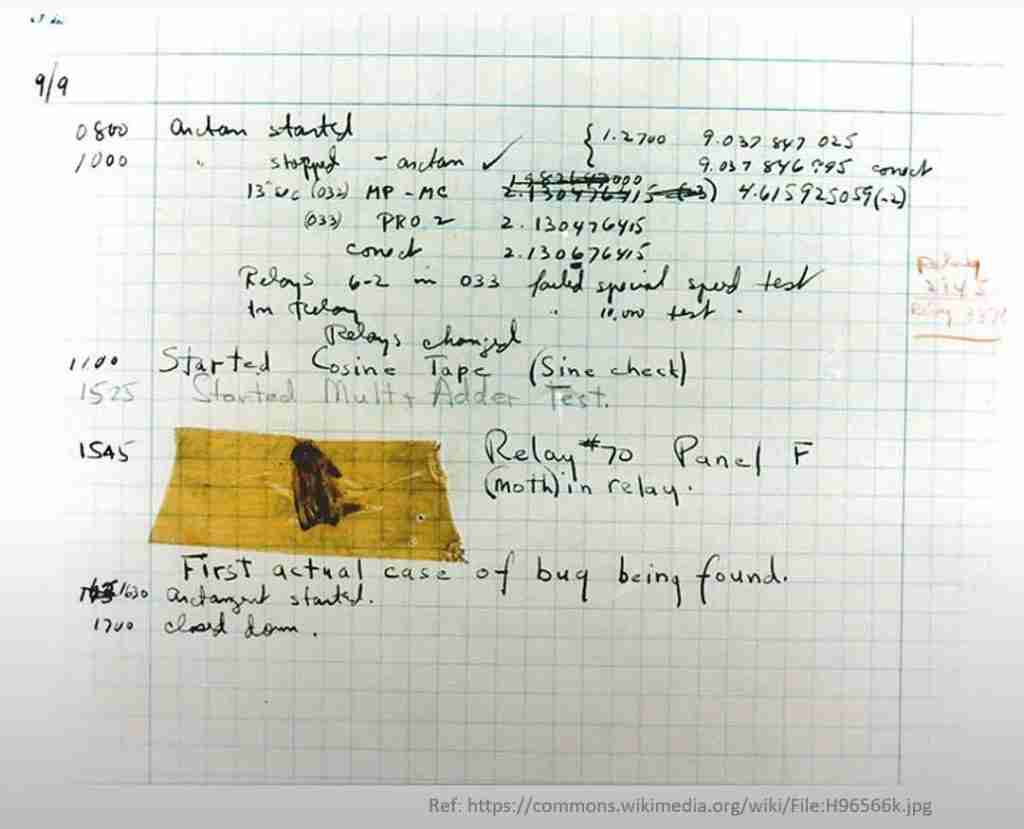 9/9
0800 Arctan started { 1.2700 9.037 847 025
1000 " stopped - arctan ✓ 9.037 846 995 conect
13" uc (032) MP - MC 2.130476415 4.615925059(-2)
(033) PRO 2 2.130476415
conect 2.130676415
Relays 6-2 in 033 failed special speed test
In Relay " 10,000 test .
Relays changed
Relay
2145
Relay 3370
1100 Started Cosine Tape (Sine check)
1525 Started Mult + Adder Test.
1545 Relay #70 Panel F
(moth) in relay.
First actual case of bug being found.
1630 Arctangent started.
1700 closed down.
Ref: https://commons.wikimedia.org/wiki/File:H96566k.jpg